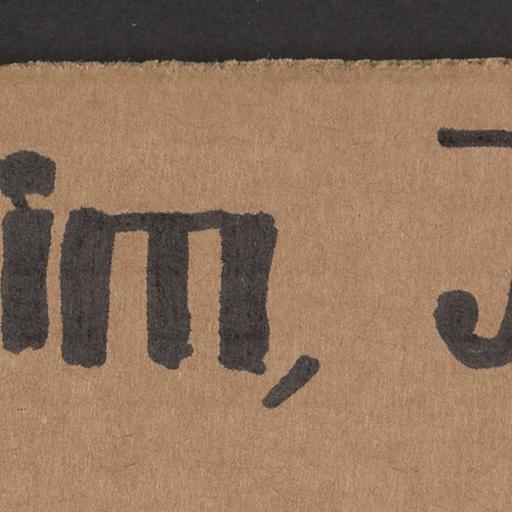 im, J